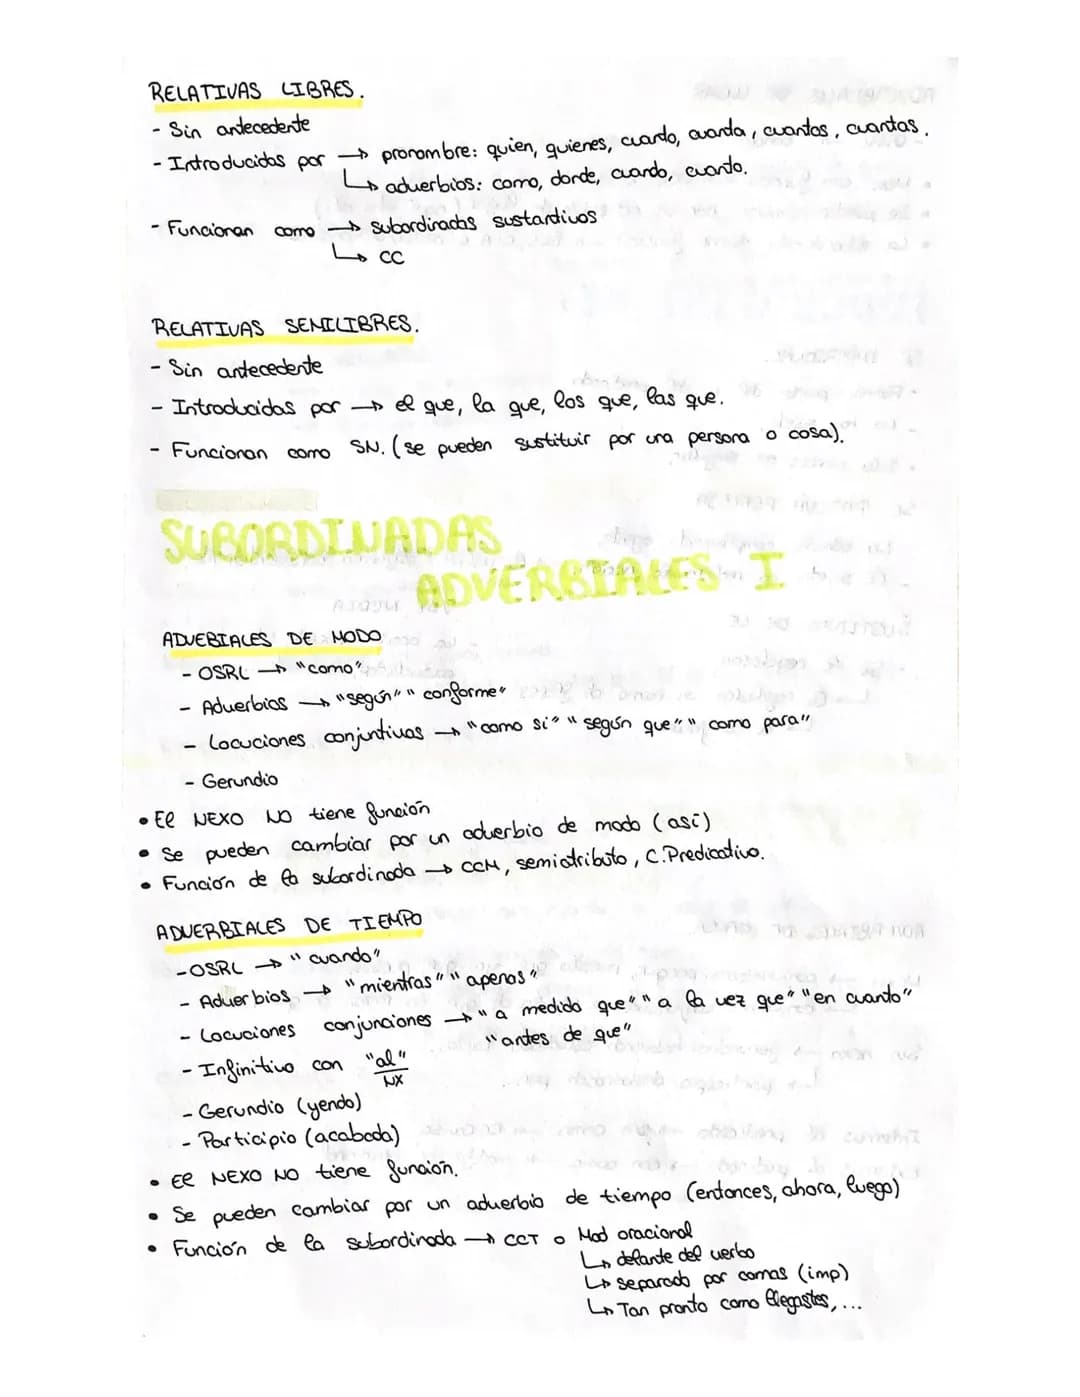 RELATIVAS LIBRES.
- Sin antecedente
- Introducidas por → pronombre: quien, quienes, cuando, cuanda, cuantos, cuantas.
↳ adverbios: como, donde, cuando, cuanto.
- Funcionan como → subordinadas sustantivas
↳ CC
RELATIVAS SEMILIBRES.
- Sin antecedente
- Introducidas por → el que, la que, los que, las que.
- Funcionan como SN. (se pueden sustituir por una persona o cosa).
SUBORDINADAS
ADVERBIALES I
ADVEBIALES DE MODO
- OSRL → "como"
- Adverbios → "según" "conforme"
- Locuciones conjuntivas → "como si" "según que" "como para"
- Gerundio
• El NEXO NO tiene función
• Se pueden cambiar por un adverbio de modo (así)
• Función de la subordinada → CCM, semiatributo, C.Predicativo.
ADVERBIALES DE TIEMPO
- OSRL → "cuando"
- Adverbios → "mientras" "apenas"
- Locuciones conjunciones → "a medida que" "a la vez que" "en cuanto"
"antes de que"
- Infinitivo con "al"
NX
- Gerundio (yendo)
- Participio (acabada)
• El NEXO NO tiene función.
• Se pueden cambiar por un adverbio de tiempo (entonces, ahora, luego)
• Función de la subordinada → CCT o Mod oracional
↳ delante del verbo
↳ separado por comas (imp)
↳ Tan pronto como llegastes,...